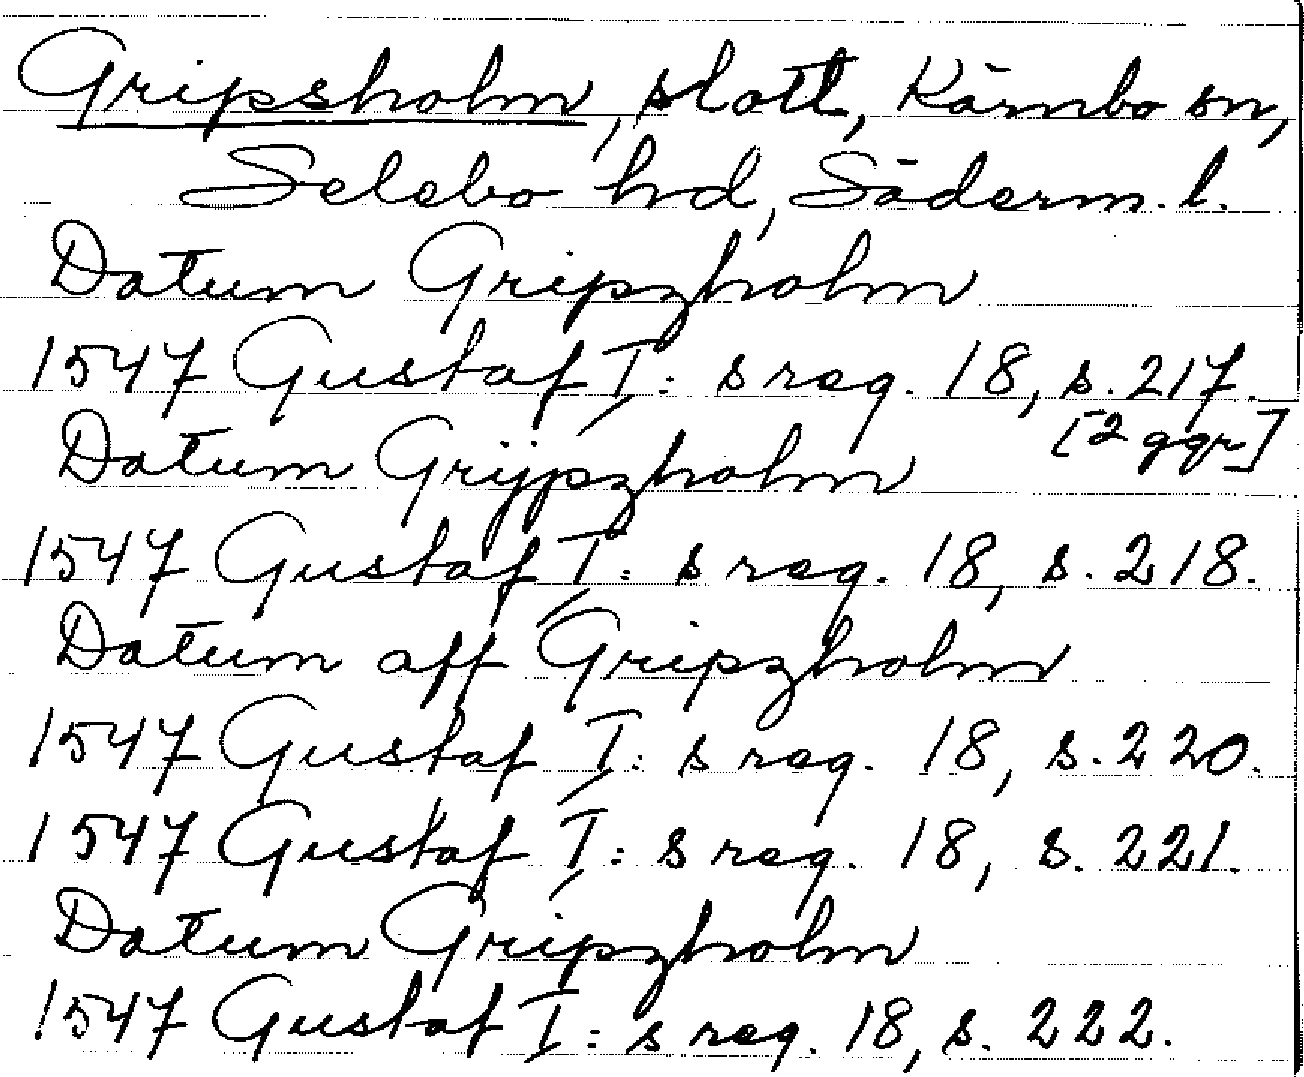 Gripsholm, slott, Kärnbo sn,
Selebo hd, Söderm. l.
Datum Gripzholm
1547 Gustaf I: s reg. 18, s. 217.
[2 ggr]
Datum Grijpzholm
1547 Gustaf I: s reg. 18, s. 218.
Datum aff Gripzholm
1547 Gustaf I: s reg. 18, s. 220.
1547 Gustaf I: s reg. 18, s. 221.
Datum Gripzholm
1547 Gustaf I: s reg. 18, s. 222.